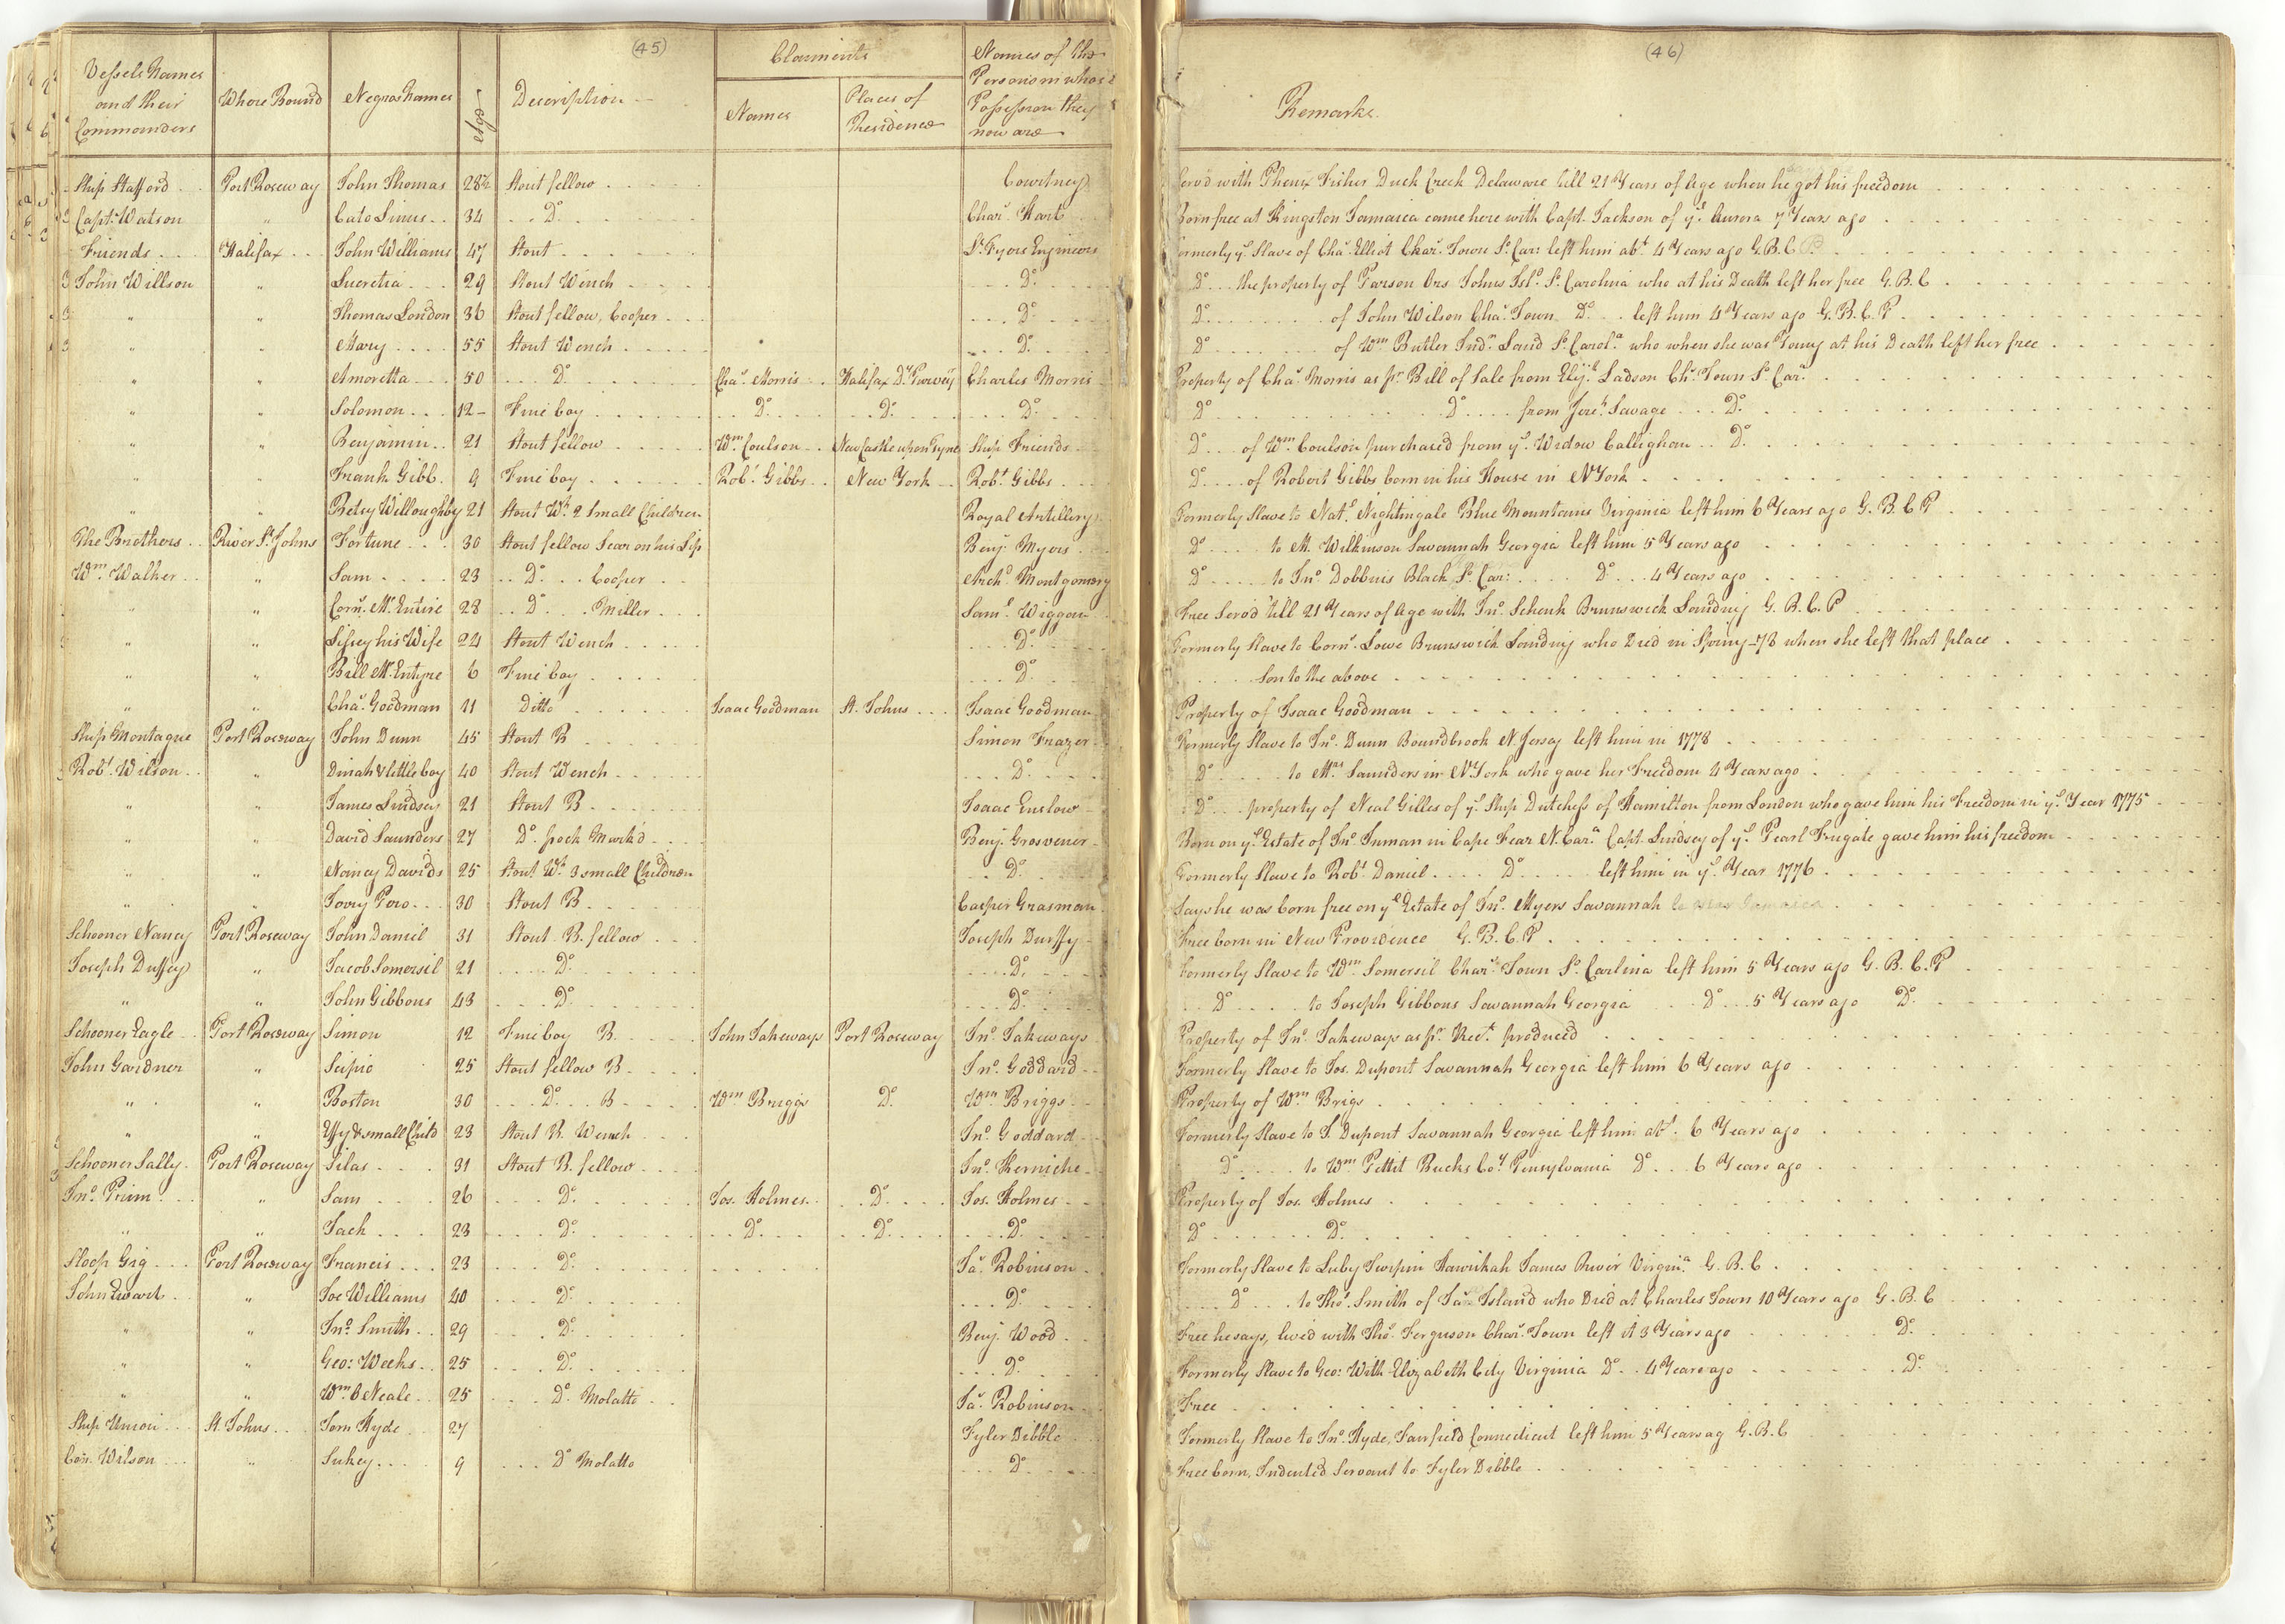 (45)
Vessels Names and their Commanders | Where Bound | Negroes Names | Age | Description | Claiments Names | Places of Residence | Names of the Persons in whose Possession they now are
(46)
Remarks.
Ship Stafford | Port Roseway | John Thomas | 28½ | Stout fellow | Courtney | Serv'd with Phenix Fisher Duck Creek Delaware till 21 Years of Age when he got his freedom
Capt. Watson | " | Cato | 34 | Do. | Chas. Hart | Born free at Kingston Jamaica came here with Capt. Jackson of ye. Aurora 7 Years ago
Friends | Halifax | John Williams | 47 | Stout | Engineers | Formerly ye. Slave of Chas. Elliot Chars. Town So. Car: left him abt. 4 Years ago G.B.C
John Willson | " | Lucretia | 29 | Stout Wench | Do. | Do. the property of Parson Johns Isld. So. Carolina who at his Death left her free G.B.C
" | " | Thomas London | 36 | Stout fellow, Cooper | Do. | Do. of John Wilson Chas. Town Do. left him 4 Years ago G.B.C.P
" | " | Mary | 55 | Stout Wench | Do. | Do. of Wm. Butler Indn. Land So. Carola. who when she was Young at his Death left her free
" | " | Amoretta | 50 | Do. | Chas. Morris | Halifax Dy. Surveyr | Charles Morris | Property of Chas. Morris as pr. Bill of Sale from Ladson Chs. Town So. Car.
" | " | Solomon | 12 | Fine boy | Do. | Do. | Do. | Do. Do. from Jereh. Savage Do.
" | " | Benjamin | 21 | Stout fellow | Wm. Coulson | NewCastle upon Tyne | Ship Friends | Do. of Wm. Coulson purchased from ye. Widow Calleghan Do.
" | " | Frank Gibb. | 9 | Fine boy | Robt. Gibbs | New York | Robt. Gibbs | Do. of Robert Gibbs born in his House in N York
" | " | Betsy Willoughby | 21 | Stout Wh. 2 Small Children | Royal Artillery | Formerly Slave to Natl. Nightingale Blue Mountains Virginia left him 6 Years ago G.B.C P
The Brothers | River St. Johns | Fortune | 30 | Stout fellow Scar on his Lip | Benj. Myers | Do. to M. Wilkinson Savannah Georgia left him 5 Years ago
Wm. Walker | " | Sam | 23 | Do. Cooper | Archd. Montgomery | Do. to Jno. Dobbins Black So. Car: Do. 4 Years ago
" | " | Corns. Mc. Entire | 28 | Do. Miller | Saml. Wiggan | Free Serv'd till 21 Years of Age with Jno. Schenk Brunswick Landing G.B.C.P
" | " | his Wife | 24 | Stout Wench | Do. | Formerly Slave to Corns. Lowe Brunswick Landing who Died in Spring -78 when she left that place
" | " | Bill Mc. Entyre | 6 | Fine boy | Do. | Son to the above
" | " | Chas. Goodman | 11 | Ditto | Isaac Goodman | St. Johns | Isaac Goodman | Property of Isaac Goodman
Ship Montague | Port Roseway | John Dunn | 45 | Stout B | Simon Frazer | Formerly Slave to Jno. Dunn Boundbrook N. Jersey left him in 1778
Robt. Wilson | " | Dinah & little boy | 40 | Stout Wench | Do. | Do. to Mrs. Saunders in N York who gave her Freedom 4 Years ago
" | " | James Lindsey | 21 | Stout B | Isaac Enslow | Do. property of Neal Gilles of ye. Ship Dutchess of Hamilton from London who gave him his Freedom in ye. Year 1775
" | " | David Saunders | 27 | Do. pock Mark'd | Benj. Grosvener | Born on ye. Estate of Jno. Inman in Cape Fear N. Cara. Capt. Lindsey of ye. Pearl Frigate gave him his freedom
" | " | Nancy Davids | 25 | Stout Wh. 3 small Children | Do. | Formerly Slave to Robt. Daniel Do. left him in ye. Year 1776
" | " | Toney | 30 | Stout B | Casper Grasman | Says he was born free on ye. Estate of Jno. Myers Savannah Jamaica
Schooner Nancy | Port Roseway | John Daniel | 31 | Stout B. fellow | Joseph Durffy | Free born in New Providence G.B.C.P
Joseph Duffey | " | Jacob Somersil | 21 | Do. | Do. | Formerly Slave to Wm. Somersil Chars. Town So. Carlina left him 5 Years ago G.B.C.P
" | " | John Gibbons | 43 | Do. | Do. | Do. to Joseph Gibbons Savannah Georgia Do. 5 Years ago Do.
Schooner Eagle | Port Roseway | Simon | 12 | Fine boy B | John Jakeways | Port Roseway | Jno. Jakeways | Property of Jno. Jakeways as pr. Rect. produced
John Gardner | " | Scipio | 25 | Stout fellow B | Jno. Goddard | Formerly Slave to Jos. Dupont Savannah Georgia left him 6 Years ago
" | " | Boston | 30 | Do. B | Wm. Briggs | Do. | Wm. Briggs | Property of Wm. Brigs
" | " | Effy & small Child | 23 | Stout B. Wench | Jno. Goddard | Formerly Slave to J. Dupont Savannah Georgia left him abt. 6 Years ago
Schooner Sally | Port Roseway | Silas | 31 | Stout B. fellow | Jno. Kerniche | Do. to Wm. Pettit Bucks Coy. Pensylvania Do. 6 Years ago
Jno. Prim | " | Sam | 26 | Do. | Jos. Holmes | Do. | Jos. Holmes | Property of Jos. Holmes
" | " | Jack | 23 | Do. | Do. | Do. | Do. | Do. Do.
Sloop Gig | Port Roseway | Francis | 23 | Do. | Jas. Robinson | Formerly Slave to James River Virgina. G.B.C
John Ewart | " | Joe Williams | 40 | Do. | Do. | Do. to Thos. Smith of Jas. Island who Died at Charles Town 10 Years ago G.B.C
" | " | Jno. Smith | 29 | Do. | Benj. Wood | Free he says, lived with Thos. Ferguson Chars. Town left it 3 Years ago Do.
" | " | Geo: Weeks | 25 | Do. | Do. | Formerly Slave to Geo: With Elizabeth City Virginia Do. 4 Years ago Do.
" | " | Wm. ONeale | 25 | Do. Molatto | Jas. Robinson | Free
Ship Union | St. Johns | Tom Hyde | 27 | Fyler Dibble | Formerly Slave to Jno. Hyde, Fairfield Connecticut left him 5 Years ag G.B.C
Con. Wilson | " | Sukey | 9 | Do. Molatto | Do. | Free born, Indented Servant to Fyler Dibble